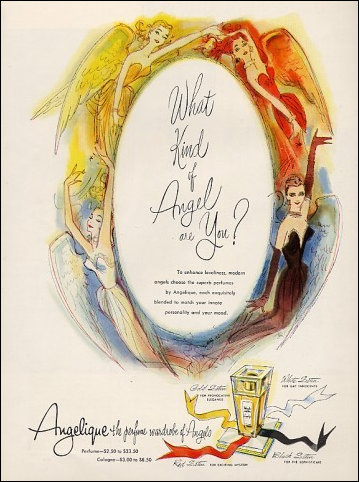 What
Kind
of
Angel
are You?
To enhance loveliness, modern
angels choose the superb perfumes
by Angelique, each exquisitely
blended to match your innate
personality and your mood.
Gold Satin
FOR PROVOCATIVE
ELEGANCE
White Satin
FOR GAY INNOCENTS
Angelique the perfume wardrobe of Angels
Perfume—$2.50 to $33.50
Cologne—$3.00 to $6.50
Red Satin
FOR EXCITING MYSTERY
Black Satin
FOR THE SOPHISTICATE